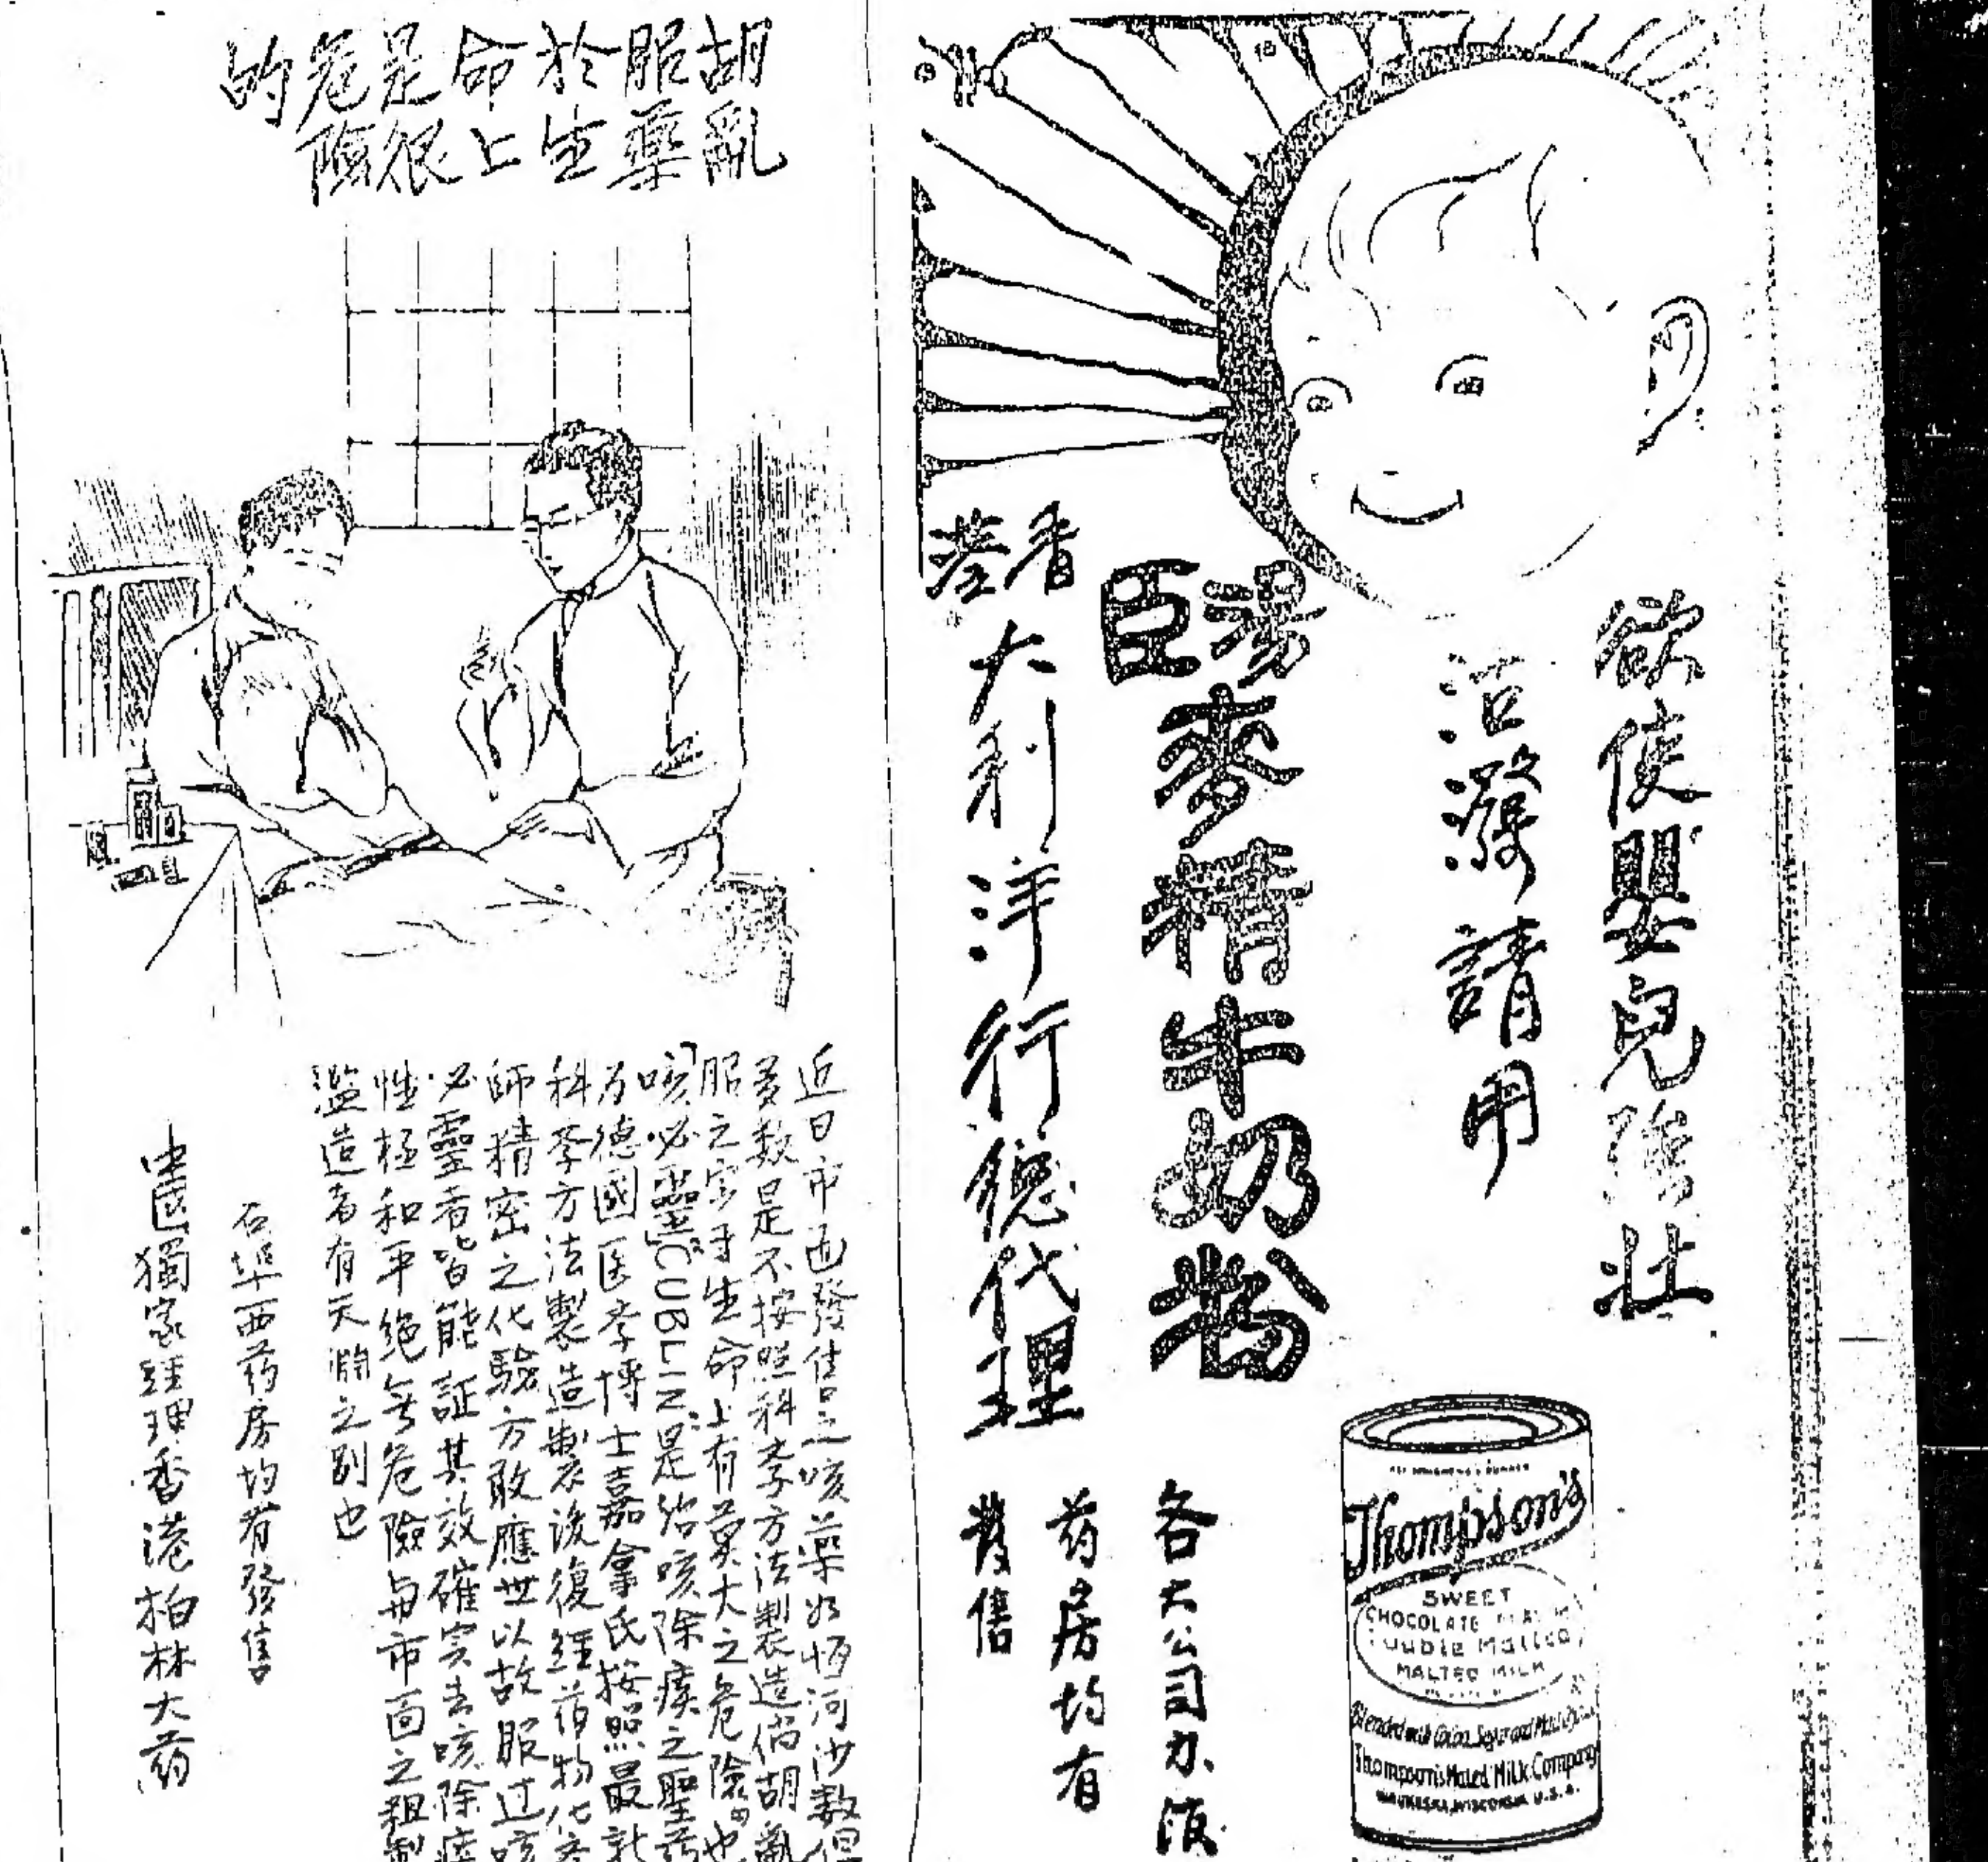 欲使嬰兒強壯
活潑請用
湯臣
麥精牛奶粉
香港
大利洋行總代理
各大公司办
药房均有
發售
Thompson's
SWEET
CHOCOLATE
Double Malted
MALTED MILK
Blended with Cocoa, Sugar and
Thompson's Malted Milk Company
WAUKESHA, WISCONSIN U.S.A.
胡亂
服藥
於生
命上
是很
危險
的
近日市面發售之咳藥如恒河沙數但
多数是不按照科李方法製造倘胡亂
服之实于生命上有莫大之危險也
「咳必靈」"CUBLIN"是治咳除痰之聖药
乃德國医李博士嘉拿氏按照最新
科李方法製造製後復經药物化李
師精密之化驗方敢應世以故服过咳
必靈者皆能証其效確实去咳除痰
性極和平绝无危險与市面之粗製
濫造者有天渊之别也
石埠西药房均有發售
中国獨家經理香港柏林大药